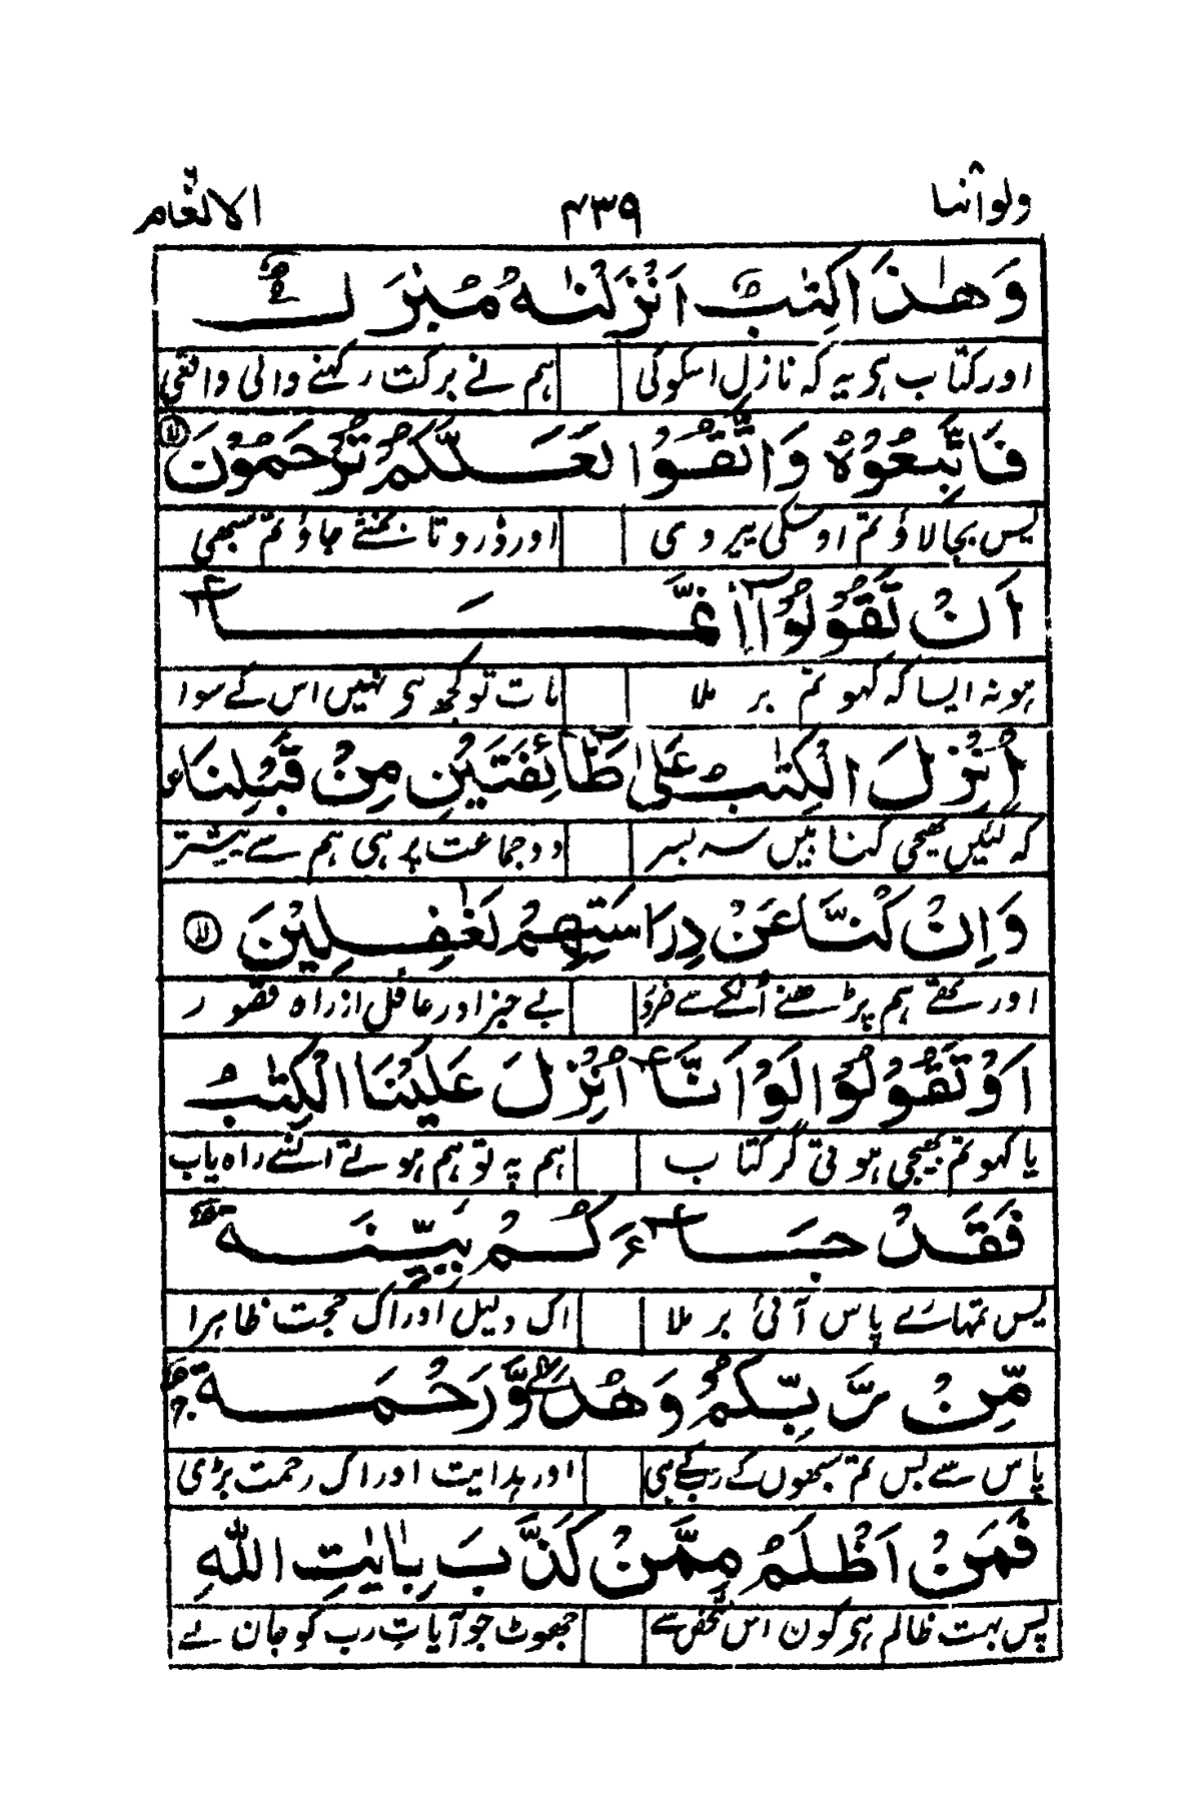 ولواننا ۴۳۹ الانعام
وَهٰذَا كِتٰبٌ اَنْزَلْنٰهُ مُبٰرَكٌ
اور کتاب ہی یہ کہ نازل اسکو کی ہم نے برکت رکھنے والی واقعی
فَاتَّبِعُوْهُ وَاتَّقُوْا لَعَلَّكُمْ تُرْحَمُوْنَ
پس بجالاؤ تم اوسکی پیروی اور ڈرو تا بخشے جاؤ تم سبھی
اَنْ تَقُوْلُوْٓا اِنَّمَآ
ہو نہ ایسا کہ کہو تم بر ملا بات تو کچھ ہی نہیں اس کے سوا
اُنْزِلَ الْكِتٰبُ عَلٰى طَآئِفَتَيْنِ مِنْ قَبْلِنَا
کہ گئیں بھیجی کتابیں سر بسر دو جماعت پر ہی ہم سے پیشتر
وَاِنْ كُنَّا عَنْ دِرَاسَتِهِمْ لَغٰفِلِيْنَ
اور تھے ہم پڑھنے اُنکے سے بے خبر اور غافل از راہ قصور
اَوْ تَقُوْلُوْا لَوْ اَنَّآ اُنْزِلَ عَلَيْنَا الْكِتٰبُ
یا کہو تم بھیجی ہوتی گر کتاب ہم پہ تو ہم ہوتے اُنسے راہ یاب
فَقَدْ جَآءَكُمْ بَيِّنَةٌ
پس تمہارے پاس آئی بر ملا اک دلیل اور اک حجت ظاہرا
مِّنْ رَّبِّكُمْ وَهُدًى وَّرَحْمَةٌ
پاس سے بس تم سبھوں کے رب کے ہی اور ہدایت اور اک رحمت بڑی
فَمَنْ اَظْلَمُ مِمَّنْ كَذَّبَ بِاٰيٰتِ اللّٰهِ
پس بہت ظالم ہی کون اس شخص سے جھوٹ جو آیاتِ رب کو جان لے